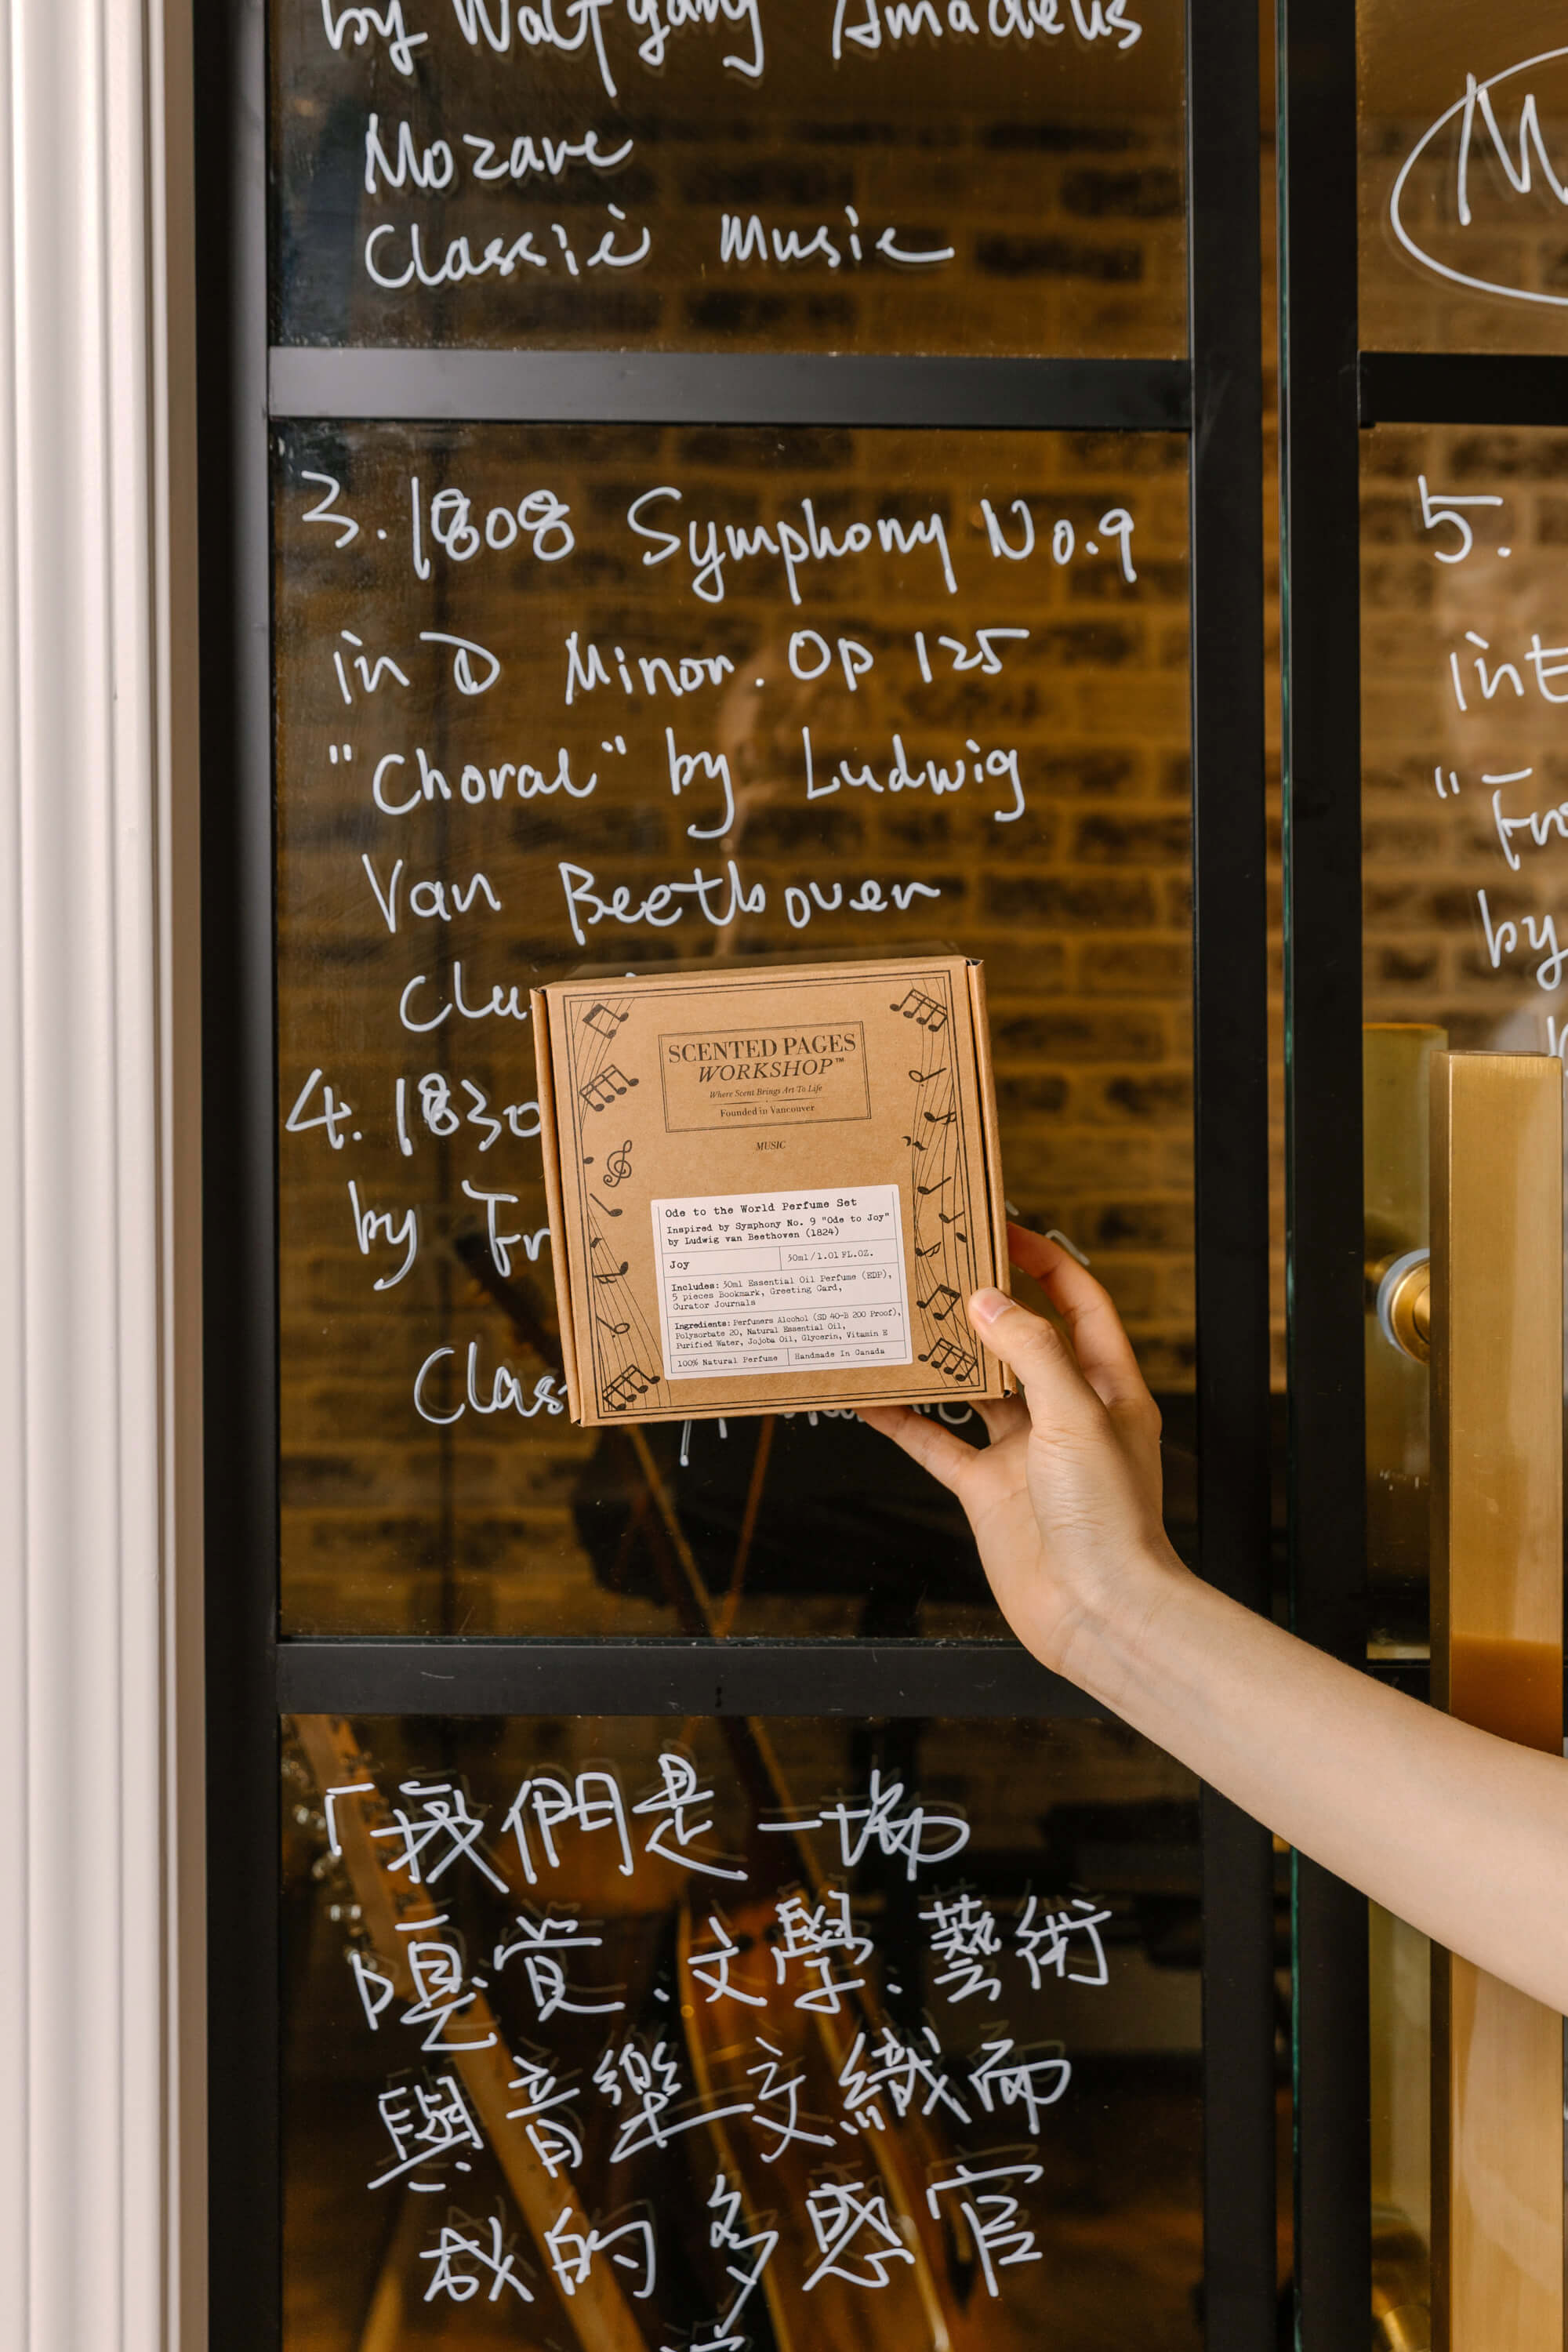 by Wolfgang Amadeus
Mozare
Classic Music
3. 1808 Symphony No.9
in D Minor. Op 125
"Choral" by Ludwig
Van Beethoven
Cla
4. 1830
by Fr
Clas
SCENTED PAGES
WORKSHOP™
Where Scent Brings Art To Life
Founded in Vancouver
MUSIC
Ode to the World Perfume Set
Inspired by Symphony No. 9 "Ode to Joy"
by Ludwig van Beethoven (1824)
Joy
30ml/1.01 FL.OZ.
Includes: 30ml Essential Oil Perfume (EDP),
5 pieces Bookmark, Greeting Card,
Curator Journals
Ingredients: Perfumers Alcohol (SD 40-B 200 Proof),
Polysorbate 20, Natural Essential Oil,
Purified Water, Jojoba Oil, Glycerin, Vitamin E
100% Natural Perfume
Handmade In Canada
「我們是一場
嗅覺.文學.藝術
與音樂交織而
成的多感官
5.
int
"Fro
by